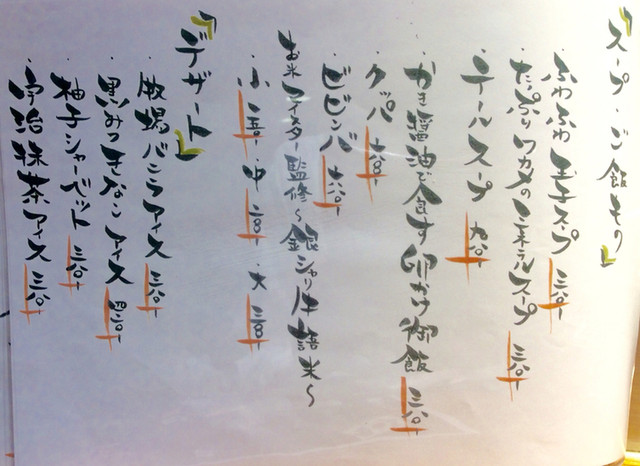 『スープ・ご飯もの』
・ふわふわ玉子スープ 三八〇-
・たっぷりワカメのミネラルスープ 三八〇-
・テールスープ 九八〇-
・かき醤油で食す卵かけ御飯 三八〇-
・クッパ 六八〇-
・ビビンバ 六八〇-
お米マイスター監修〜銀シャリ生諸米〜
・小 一五〇- ・中 二三〇- ・大 三三〇-
『デザート』
・牧場バニラアイス 三八〇-
・黒みつきなこアイス 四八〇-
・柚子シャーベット 三八〇-
・宇治抹茶アイス 三八〇-